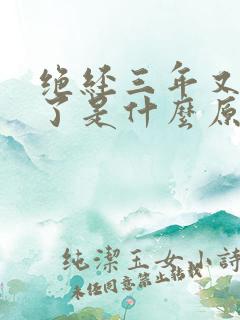 绝经三年又
了是什麼原
纯潔玉女小詩
未任同意禁止轉載